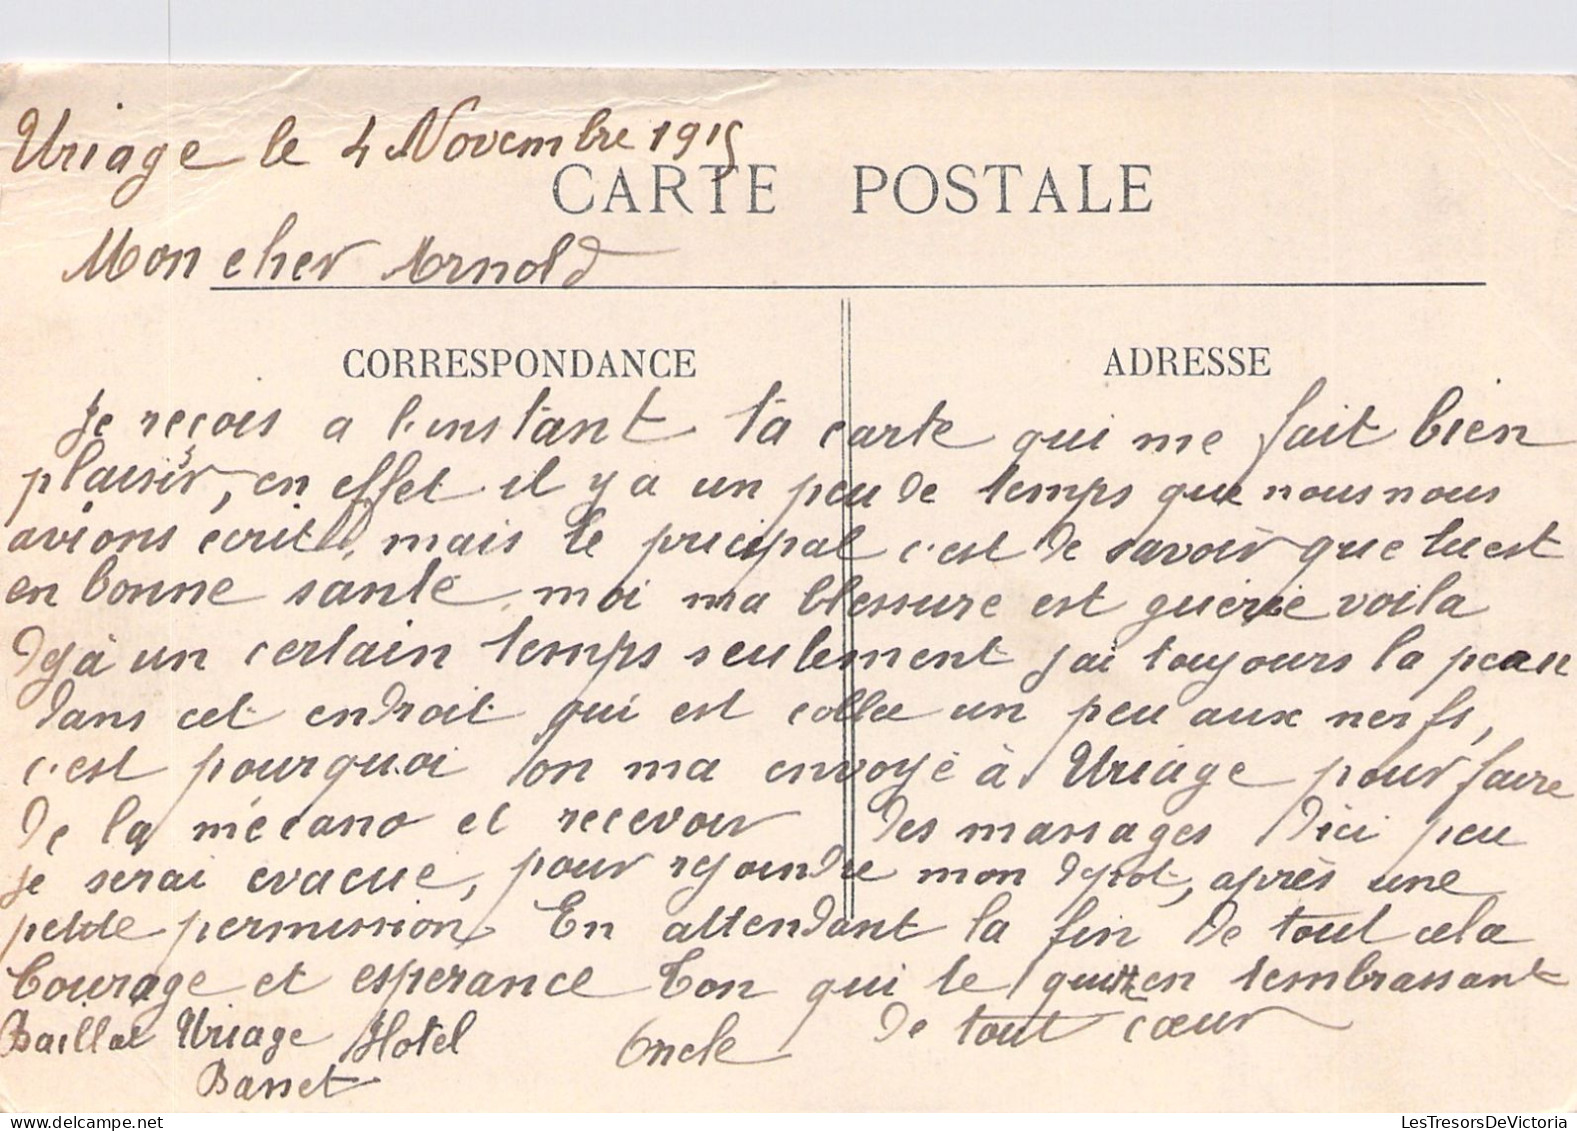 Uriage le 4 Novembre 1915
CARTE POSTALE
Mon cher Arnold
CORRESPONDANCE
ADRESSE
Je reçois a l'instant ta carte qui me fait bien
plaisir, en effet il y a un peu de temps que nous nous
avions ecrit, mais le pricipal c'est de savoir que tu est
en bonne santé, moi ma blessure est guerie voila
dejà un certain temps seulement j'ai toujours la peau
dans cet endroit qui est collee un peu aux nerfs,
c'est pourquoi on ma envoyé à Uriage pour faire
de la mécano et recevoir des massages D'ici peu
je serai evacue, pour rejoindre mon depot, après une
petite permission. En attendant la fin de tout cela
Courage et esperance Ton qui te quitt en t'embrassant
Uriage Hotel Oncle de tout cœur
Basset
LesTresorsDeVictoria
www.delcampe.net